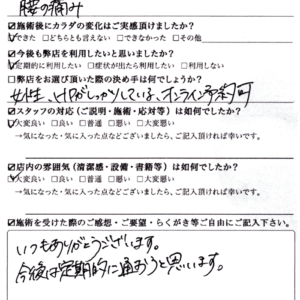 腰の痛み
☑施術後にカラダの変化はご実感頂けましたか？
☑できた □どちらとも言えない □できなかった □その他
☑今後も弊店を利用したいと思いましたか？
☑定期的に利用したい □症状が出たら利用したい □利用しない
□弊店をお選び頂いた際の決め手は何でしょうか？
女性、HPがしっかりしている、オンライン予約可
☑スタッフの対応（ご説明・施術・応対等）は如何でしたか？
☑大変良い □良い □普通 □悪い □大変悪い
→気になった・気に入った点などございましたら、ご記入頂ければ幸いです。
☑店内の雰囲気（清潔感・設備・書籍等）は如何でしたか？
☑大変良い □良い □普通 □悪い □大変悪い
→気になった・気に入った点などございましたら、ご記入頂ければ幸いです。
☑施術を受けた際のご感想・ご要望・らくがき等ご自由にご記入下さい。
いつもありがとうございます。
今後は定期的に通おうと思います。